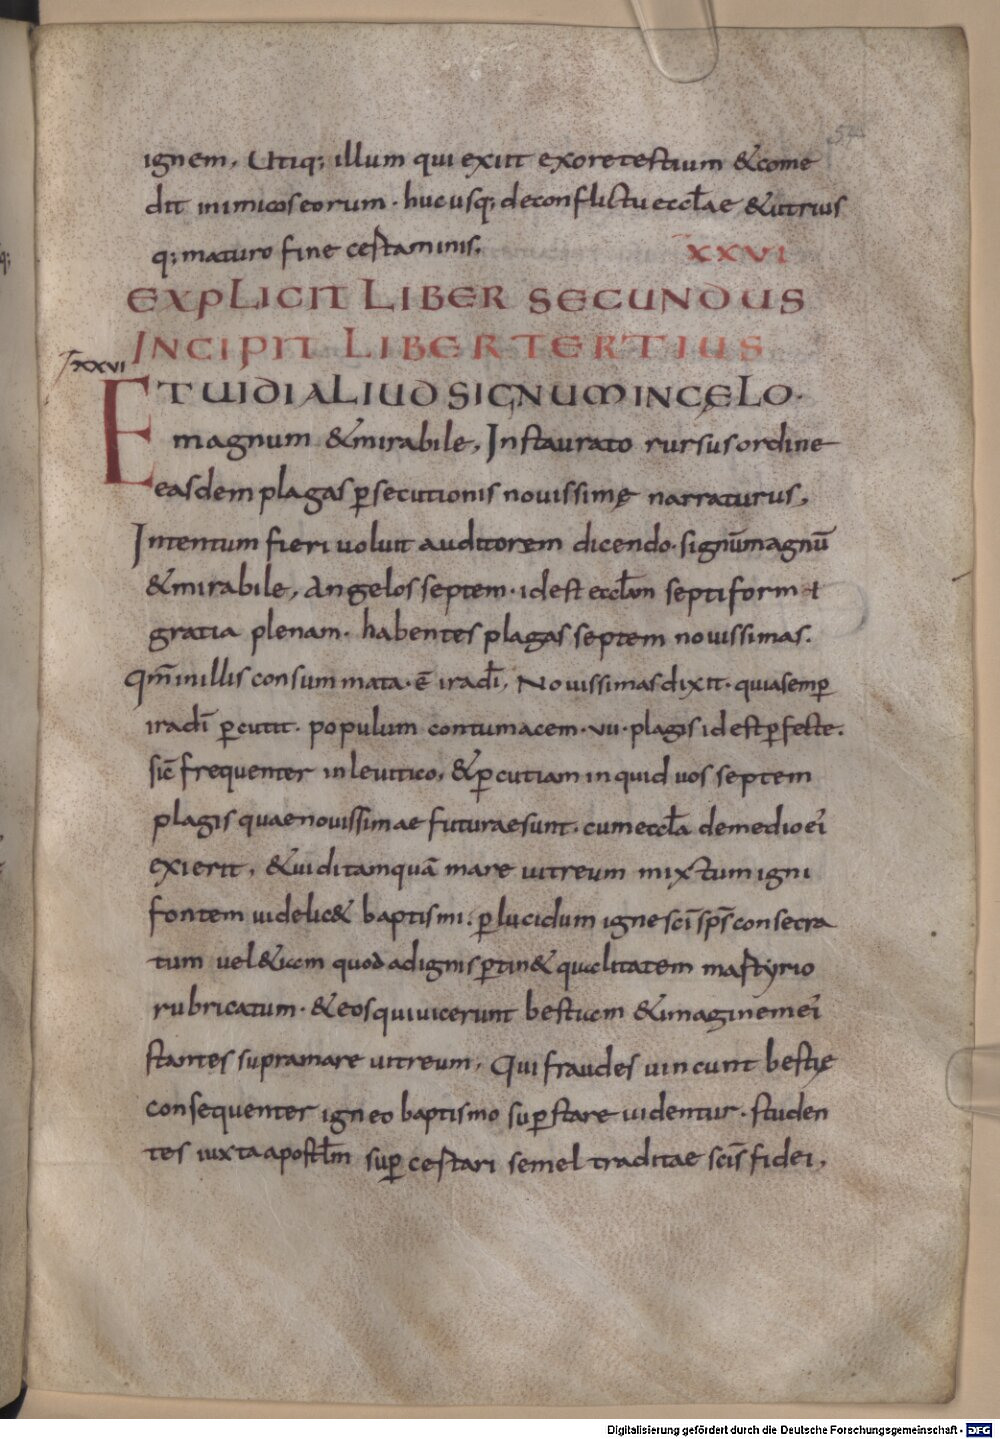 54
ignem, Utiq; illum qui exiit exoretestium &come
dit inimicoseorum · hucusq; deconflictu eccl̄ae &utrius
q; maturo fine cestaminis;
XXVI
EXPLICIT LIBER SECUNDUS
INCIPIT LIBER TERTIUS
XXVI
ET UIDI ALIUD SIGNUM IN CĘLO·
magnum &mirabile, Instaurato rursus ordine
easdem plagas p̲secutionis nouissimę narraturus,
Intentum fieri uoluit auditorem dicendo· signūmagnū
&mirabile, Angelos septem· idest eccl̄am septiformi
gratia plenam· habentes plagas septem nouissimas.
Qm̄ inillis consummata· ē iradī, Nouissimasdixit· quiasemp̲
iradī p̲cutit· populum contumacem· vii· plagis idestp̲fecte.
sic̄ frequenter inleuitico, &p̲cutiam inquid uos septem
plagis quaenouissimae futuraesunt· cumeccl̄a demedioeī
exierit, &uiditamquā mare uitreum mixtum igni
fontem uidelic& baptismi· p̲lucidum ignescī sp̄s consecra
tum uel&iam quodadignis p̲tin& qualitatem mastyrio
rubricatum· &eosquiuicerunt bestiam &imaginemeī
stantes supramare uitreum, Qui fraudes uincunt bestię
consequenter igneo baptismo sup̲stare uidentur· studen
tes iuxta apostl̄m sup̲ cestari semel traditae scīs fidei,
Digitalisierung gefördert durch die Deutsche Forschungsgemeinschaft - DFG